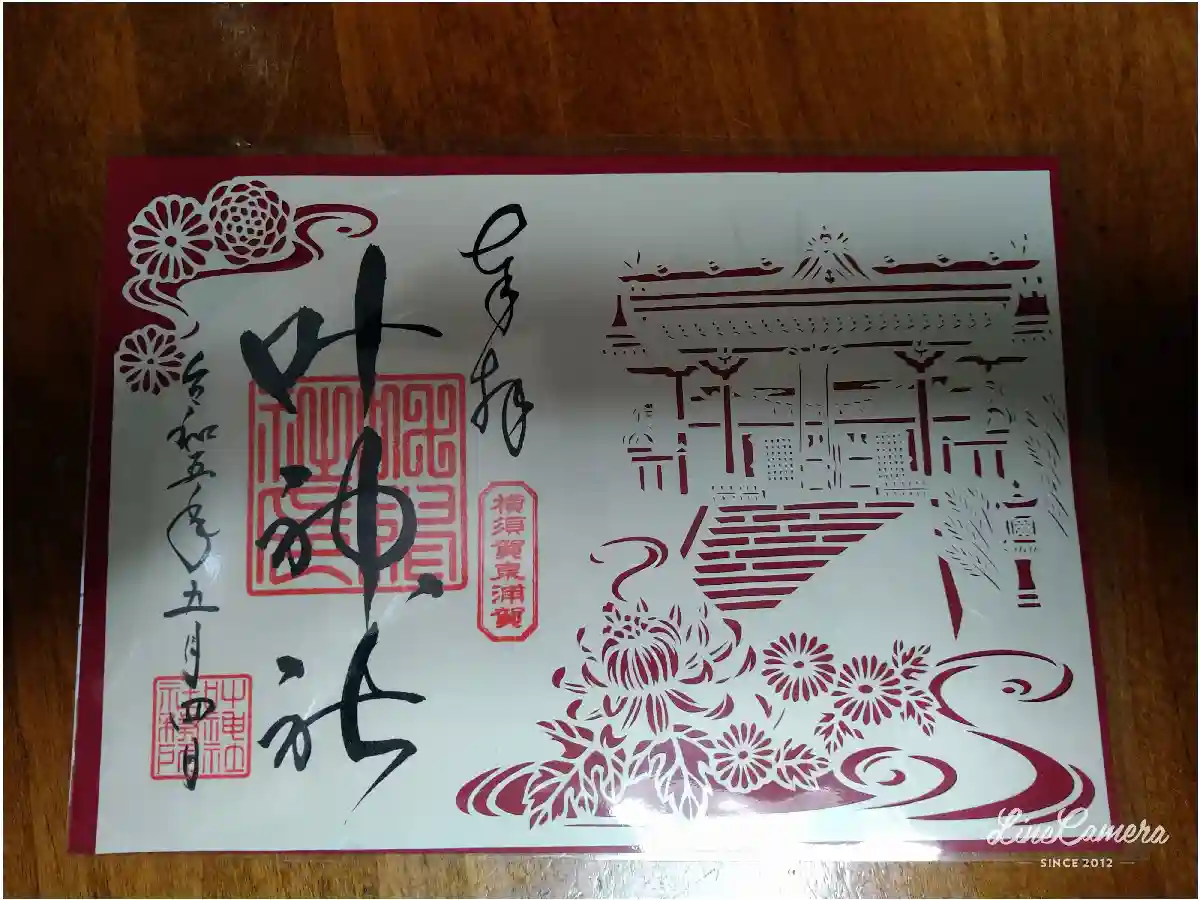 奉拝
横須賀東浦賀
叶神社
令和五年五月四日
叶神社
社務所
LineCamera
SINCE 2012